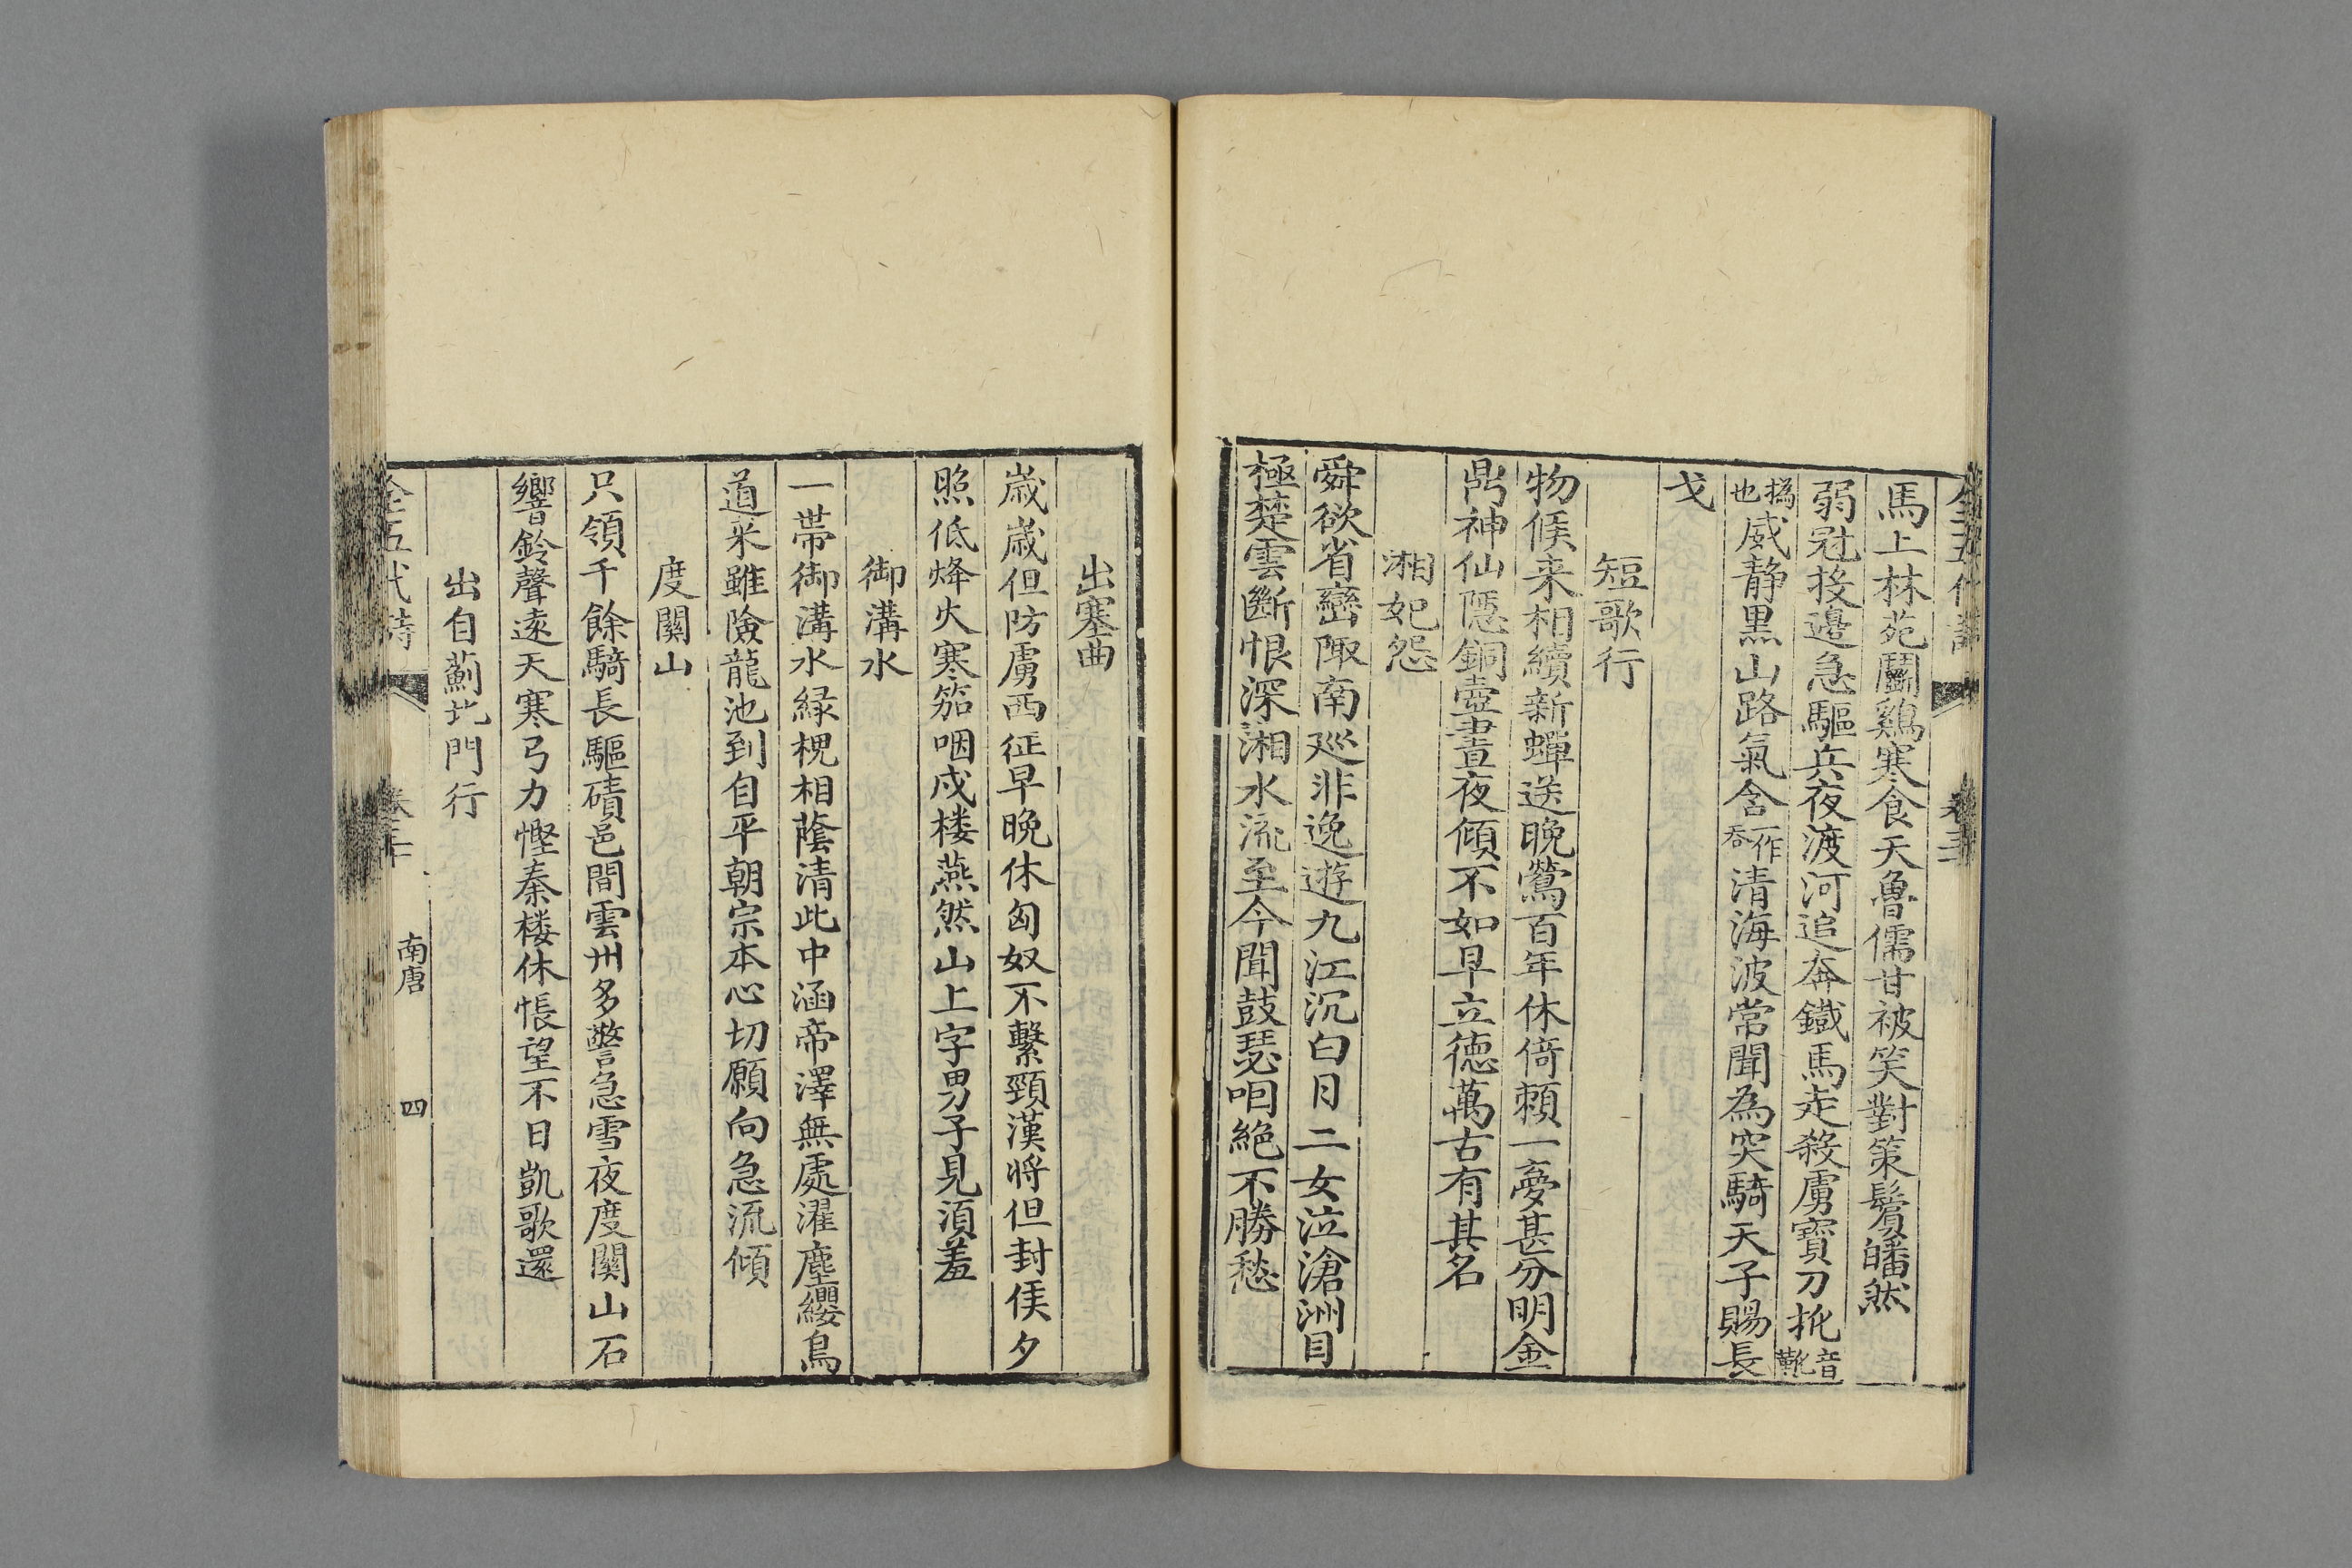 馬上林苑鬬鷄寒食天魯儒甘被笑對策鬢皤然
弱冠投邊急驅兵夜渡河追奔鐵馬走殺虜寳刀㧞音靴
撝也威静黒山路氣含一作吞清海波常聞為突騎天子賜長
戈
短歌行
物候来相續新蟬送晚鶯百年休倚頼一夢甚分明金
鼎神仙隠銅壺晝夜傾不如早立徳萬古有其名
湘妃怨
舜欲省蠻陬南廵非逸遊九江沉白日二女泣滄洲目
極楚雲斷恨深湘水流至今聞鼓瑟咽絶不勝愁
出塞曲
嵗嵗但防虜西征早晚休匈奴不繫頸漢将但封侯夕
照低烽火寒笳咽戍楼燕然山上字男子見湏羞
御溝水
一帯御溝水緑槐相䕃清此中涵帝澤無處濯塵纓鳥
道来雖險龍池到自平朝宗本心切願向急流傾
度關山
只領千餘騎長驅磧邑間雲州多警急雪夜度關山石
響鈴聲逺天寒弓力慳秦楼休悵望不日凱歌還
出自薊北門行
全五代詩
南唐
四